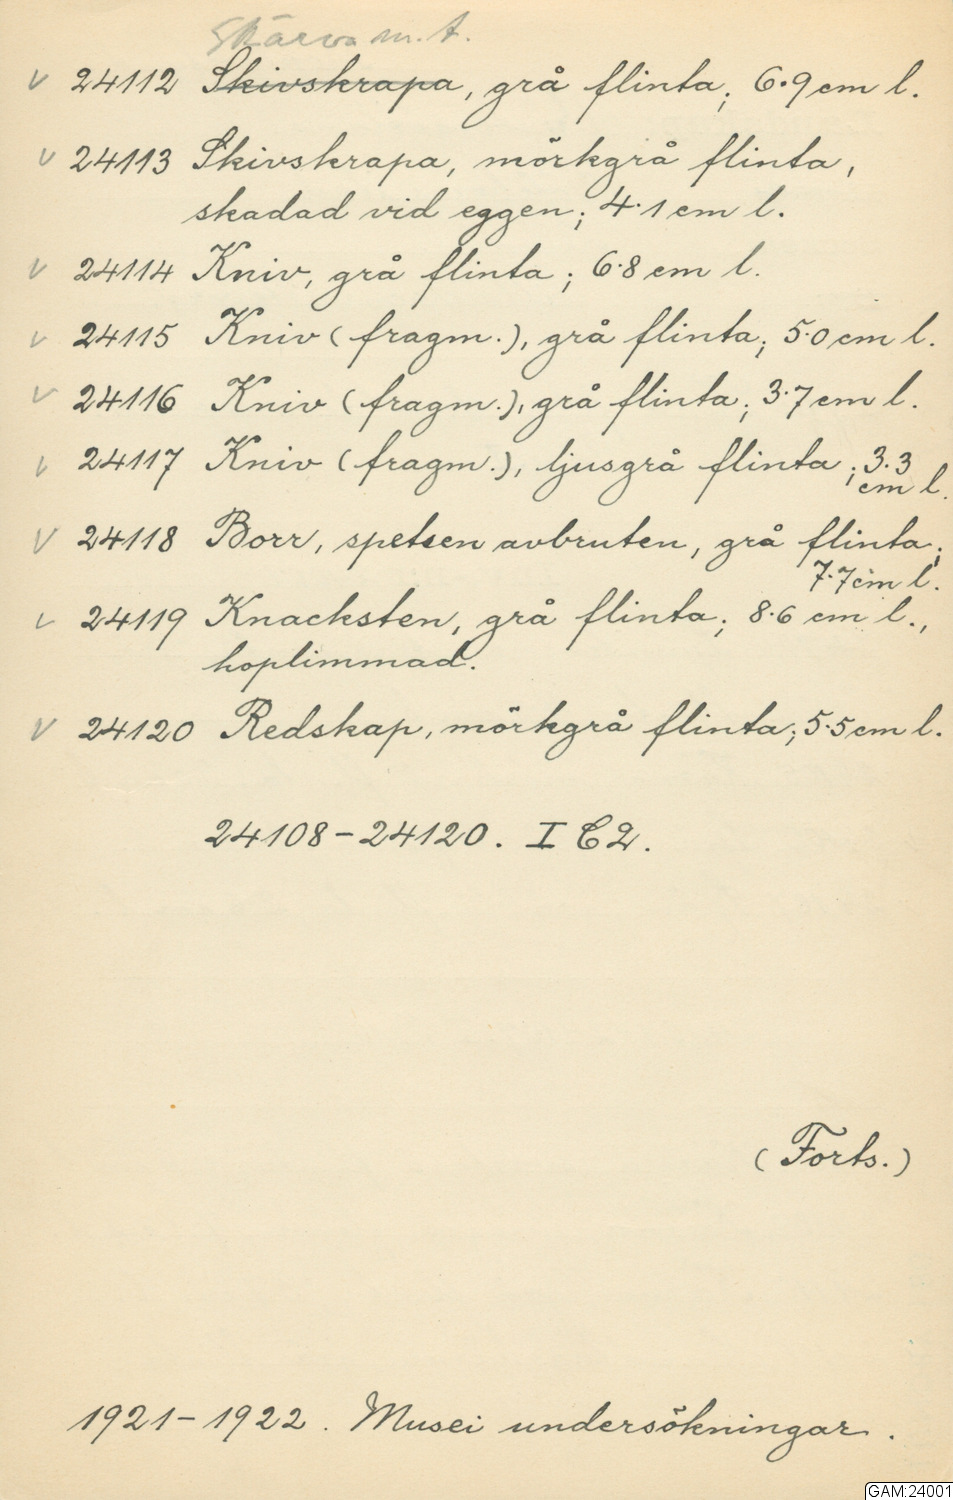 Skärva m. t.
v 24112 Skivskrapa, grå flinta; 6.9 cm l.
v 24113 Skivskrapa, mörkgrå flinta,
skadad vid eggen; 4.1 cm l.
v 24114 Kniv, grå flinta; 6.8 cm l.
v 24115 Kniv (fragm.), grå flinta; 5.0 cm l.
v 24116 Kniv (fragm.), grå flinta; 3.7 cm l.
v 24117 Kniv (fragm.), ljusgrå flinta; 3.3
cm l.
v 24118 Borr, spetsen avbruten, grå flinta;
7.7 cm l.
v 24119 Knacksten, grå flinta; 8.6 cm l.,
hoplimmad.
v 24120 Redskap, mörkgrå flinta; 5.5 cm l.
24108-24120. I C2.
(Forts.)
1921-1922. Musei undersökningar.
GAM:24001